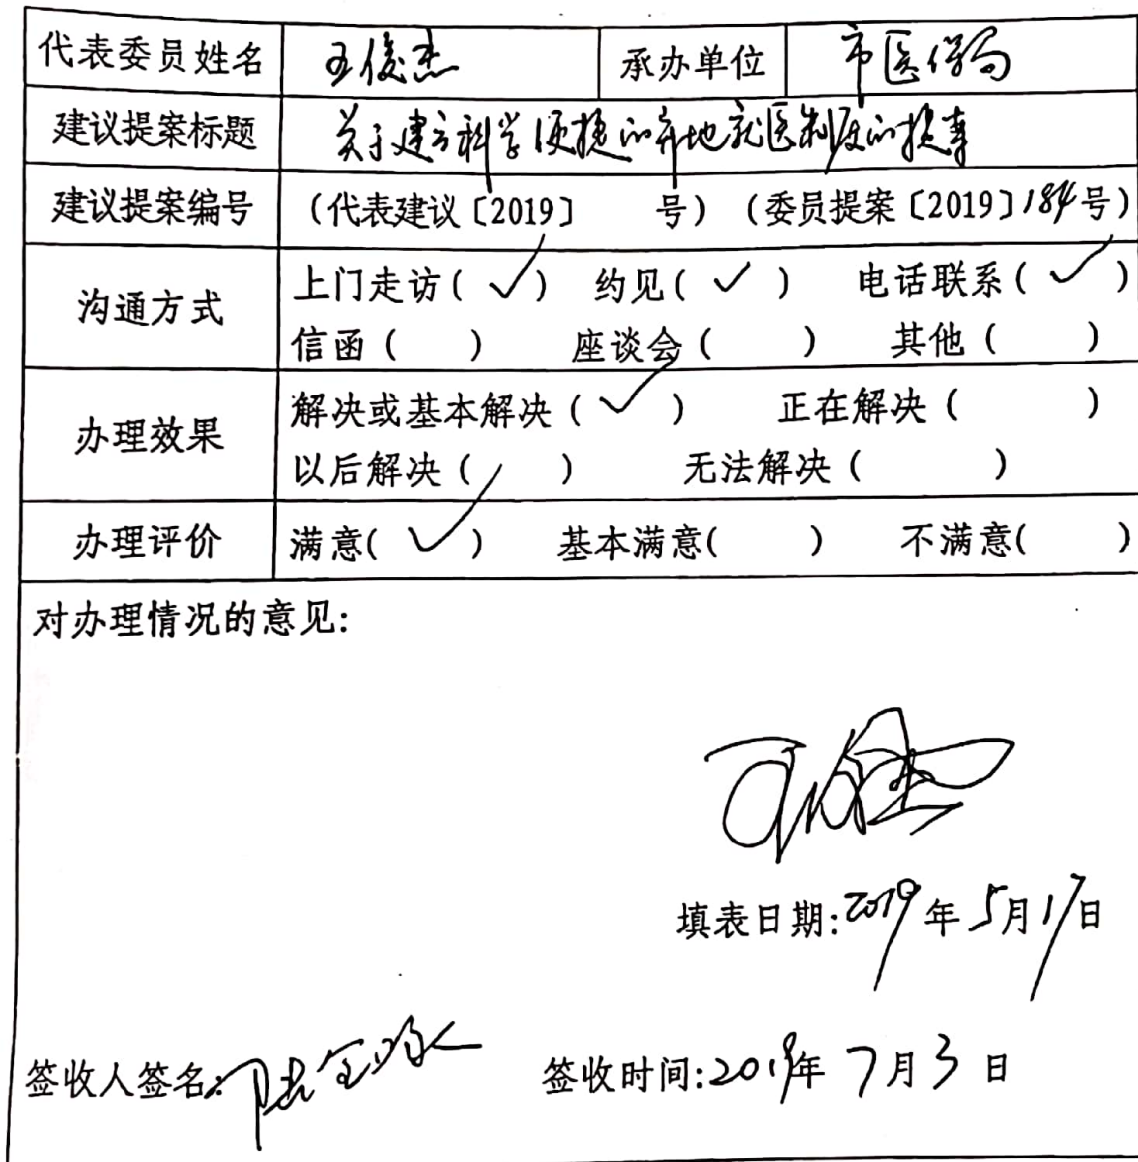 代表委员姓名 王俊杰 承办单位 市医保局
建议提案标题 关于建立科学便捷的异地就医制度的提案
建议提案编号 (代表建议〔2019〕 号) (委员提案〔2019〕184号)
沟通方式 上门走访( ✓ ) 约见( ✓ ) 电话联系( ✓ )
信函( ) 座谈会( ) 其他( )
办理效果 解决或基本解决( ✓ ) 正在解决( )
以后解决( ) 无法解决( )
办理评价 满意( ✓ ) 基本满意( ) 不满意( )
对办理情况的意见:
王俊杰
填表日期:2019年5月17日
签收人签名: 签收时间:2019年7月3日